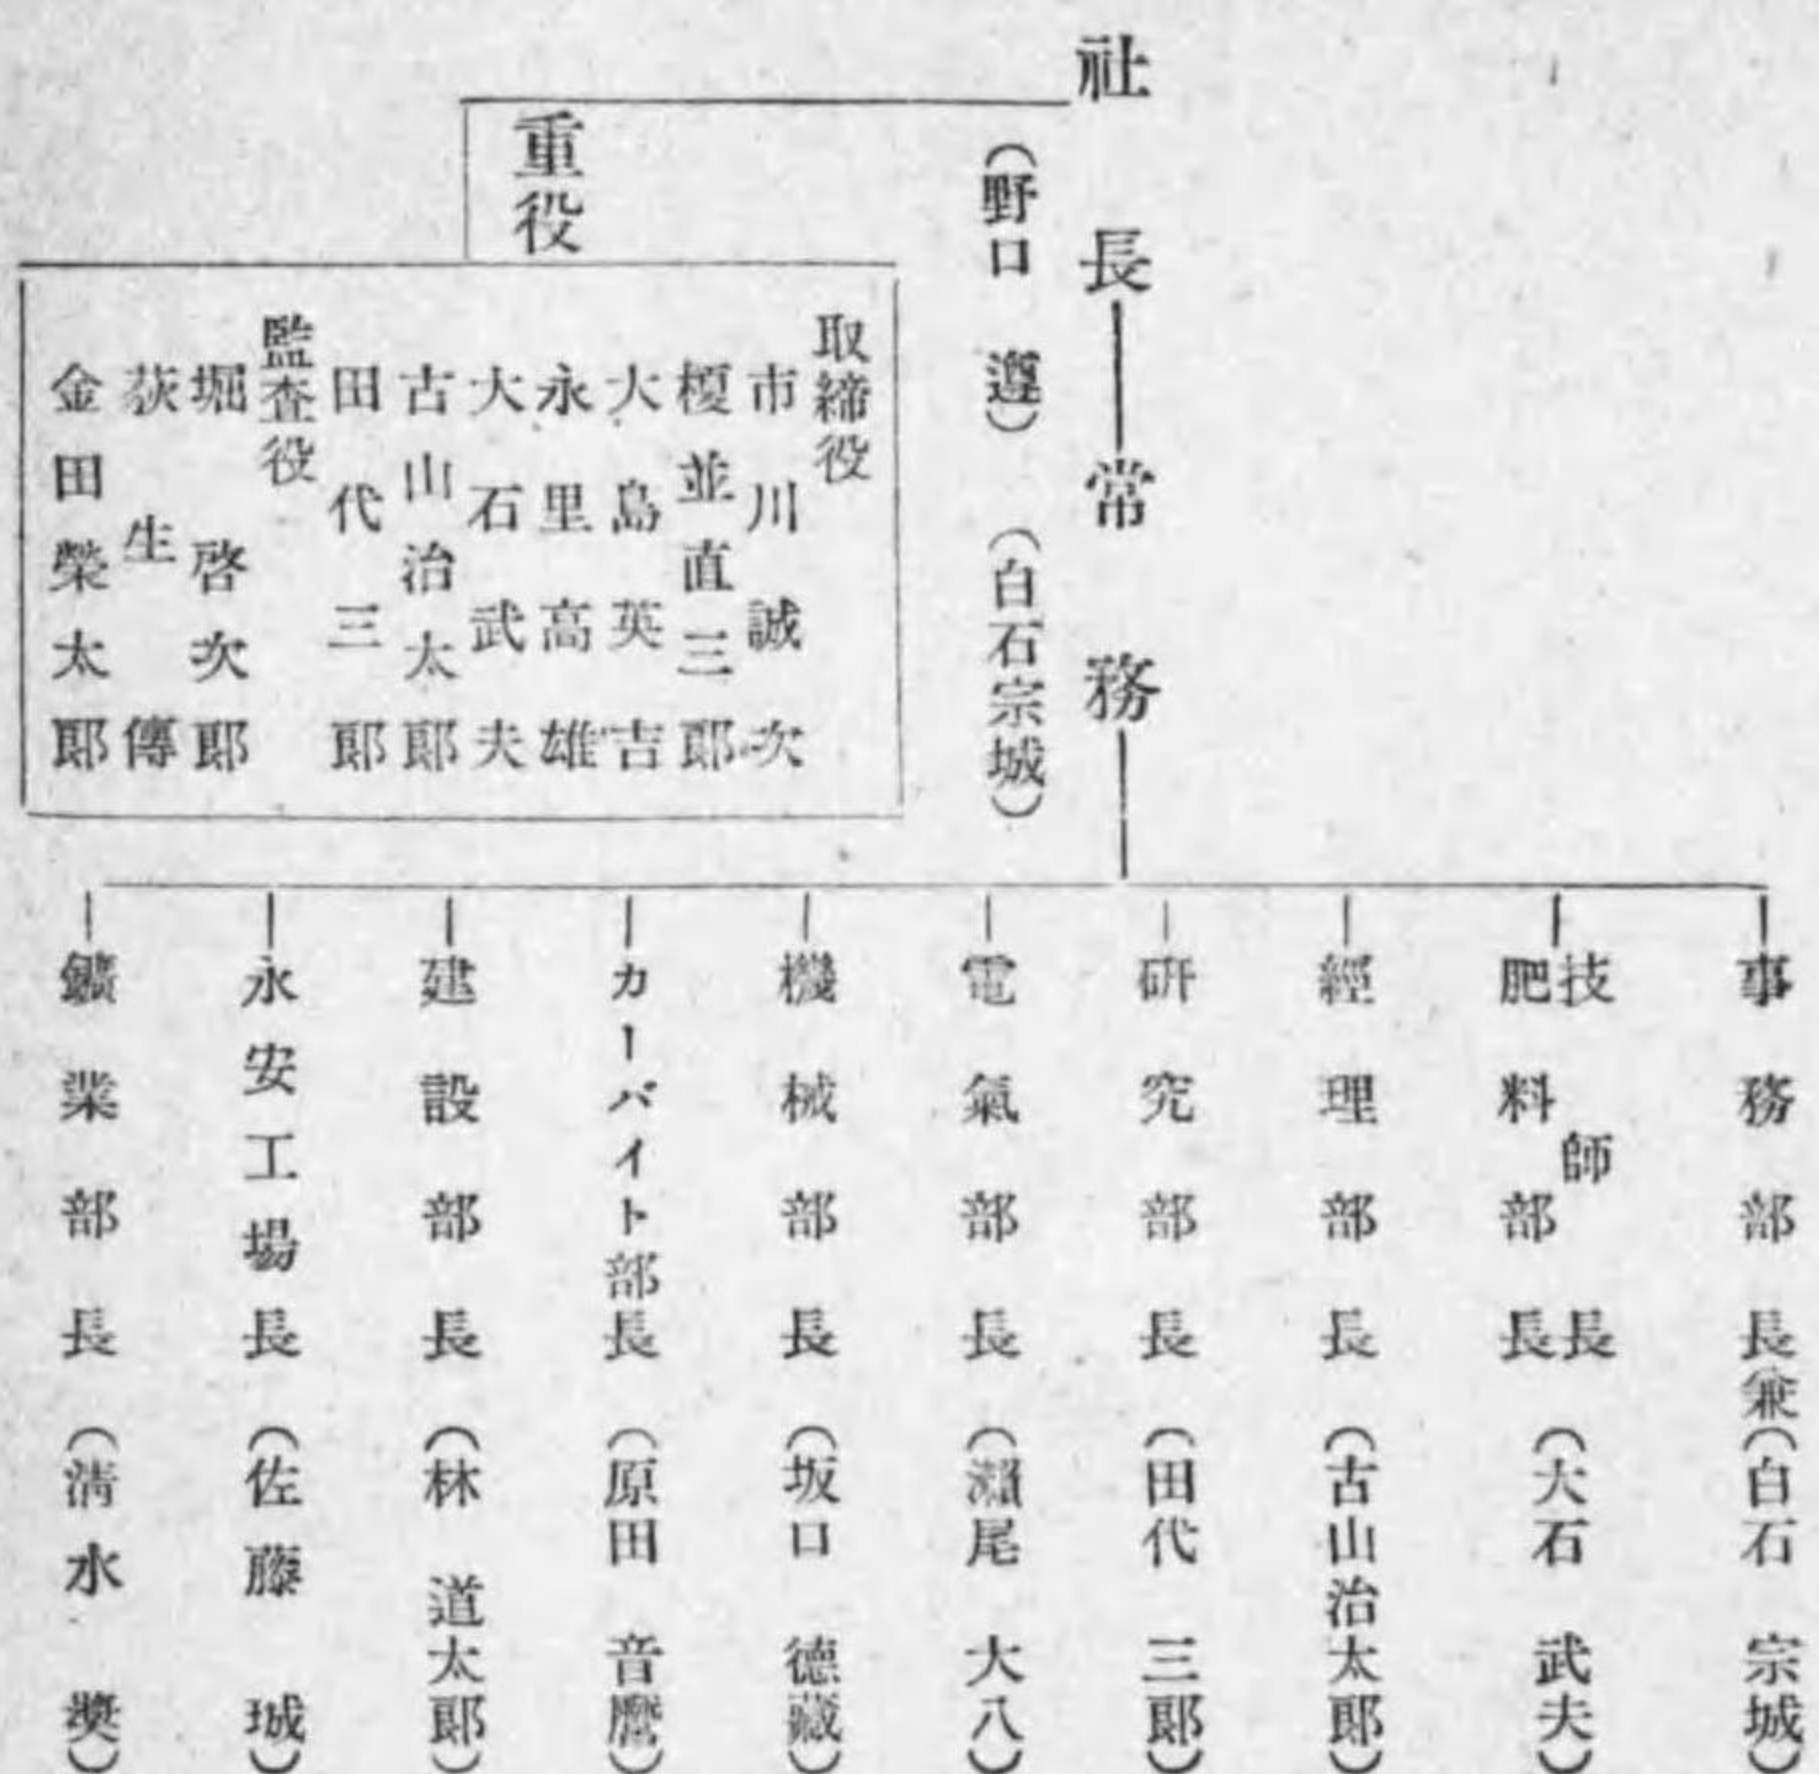 社長━常務
(野口 遵) (白石宗城)
重役
取締役
市川誠次
榎並直三郎
大島英吉
永里高雄
大石武夫
古山治太郎
田代三郎
監査役
堀啓次郎
荻生傳
金田榮太郎
事務部長兼(白石 宗城)
技師長
肥料部長(大石 武夫)
經理部長(古山治太郎)
研究部長(田代 三郎)
電氣部長(瀨尾 大八)
機械部長(坂口 德藏)
カーバイト部長(原田 音麿)
建設部長(林 道太郎)
永安工場長(佐藤 城)
鑛業部長(淸水 奬)